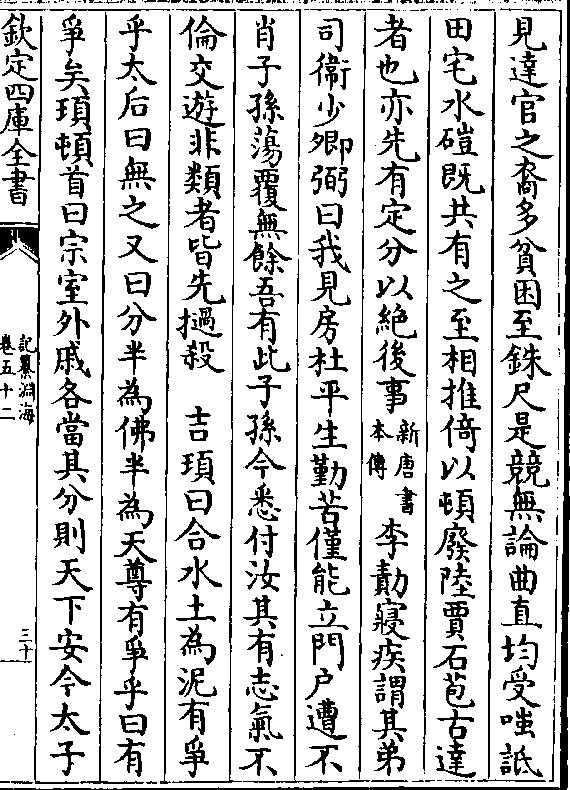 見達官之裔多貧困至銖尺是競無論曲直均受嗤詆
田宅水磑既共有之至相推倚以頓廢陸賈石苞古達
者也亦先有定分以絕後事新唐書本傳 李勣寢疾謂其弟
司衛少卿弼曰我見房杜平生勤苦僅能立門户遭不
肖子孫蕩覆無餘吾有此子孫今悉付汝其有志氣不
倫交遊非類者皆先撾殺 吉頊曰合水土為泥有爭
乎太后曰無之又曰分半為佛半為天尊有爭乎曰有
爭矣頊頓首曰宗室外戚各當其分則天下安今太子
欽定四庫全書
記纂淵海
卷五十二
三十